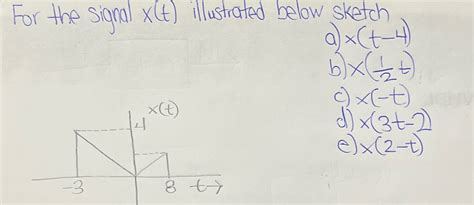 For the signal x(t) illustrated below sketch
a) x(t-4)
b) x(1/2 t)
c) x(-t)
d) x(3t-2)
e) x(2-t)
x(t)
4
-3
8
t→